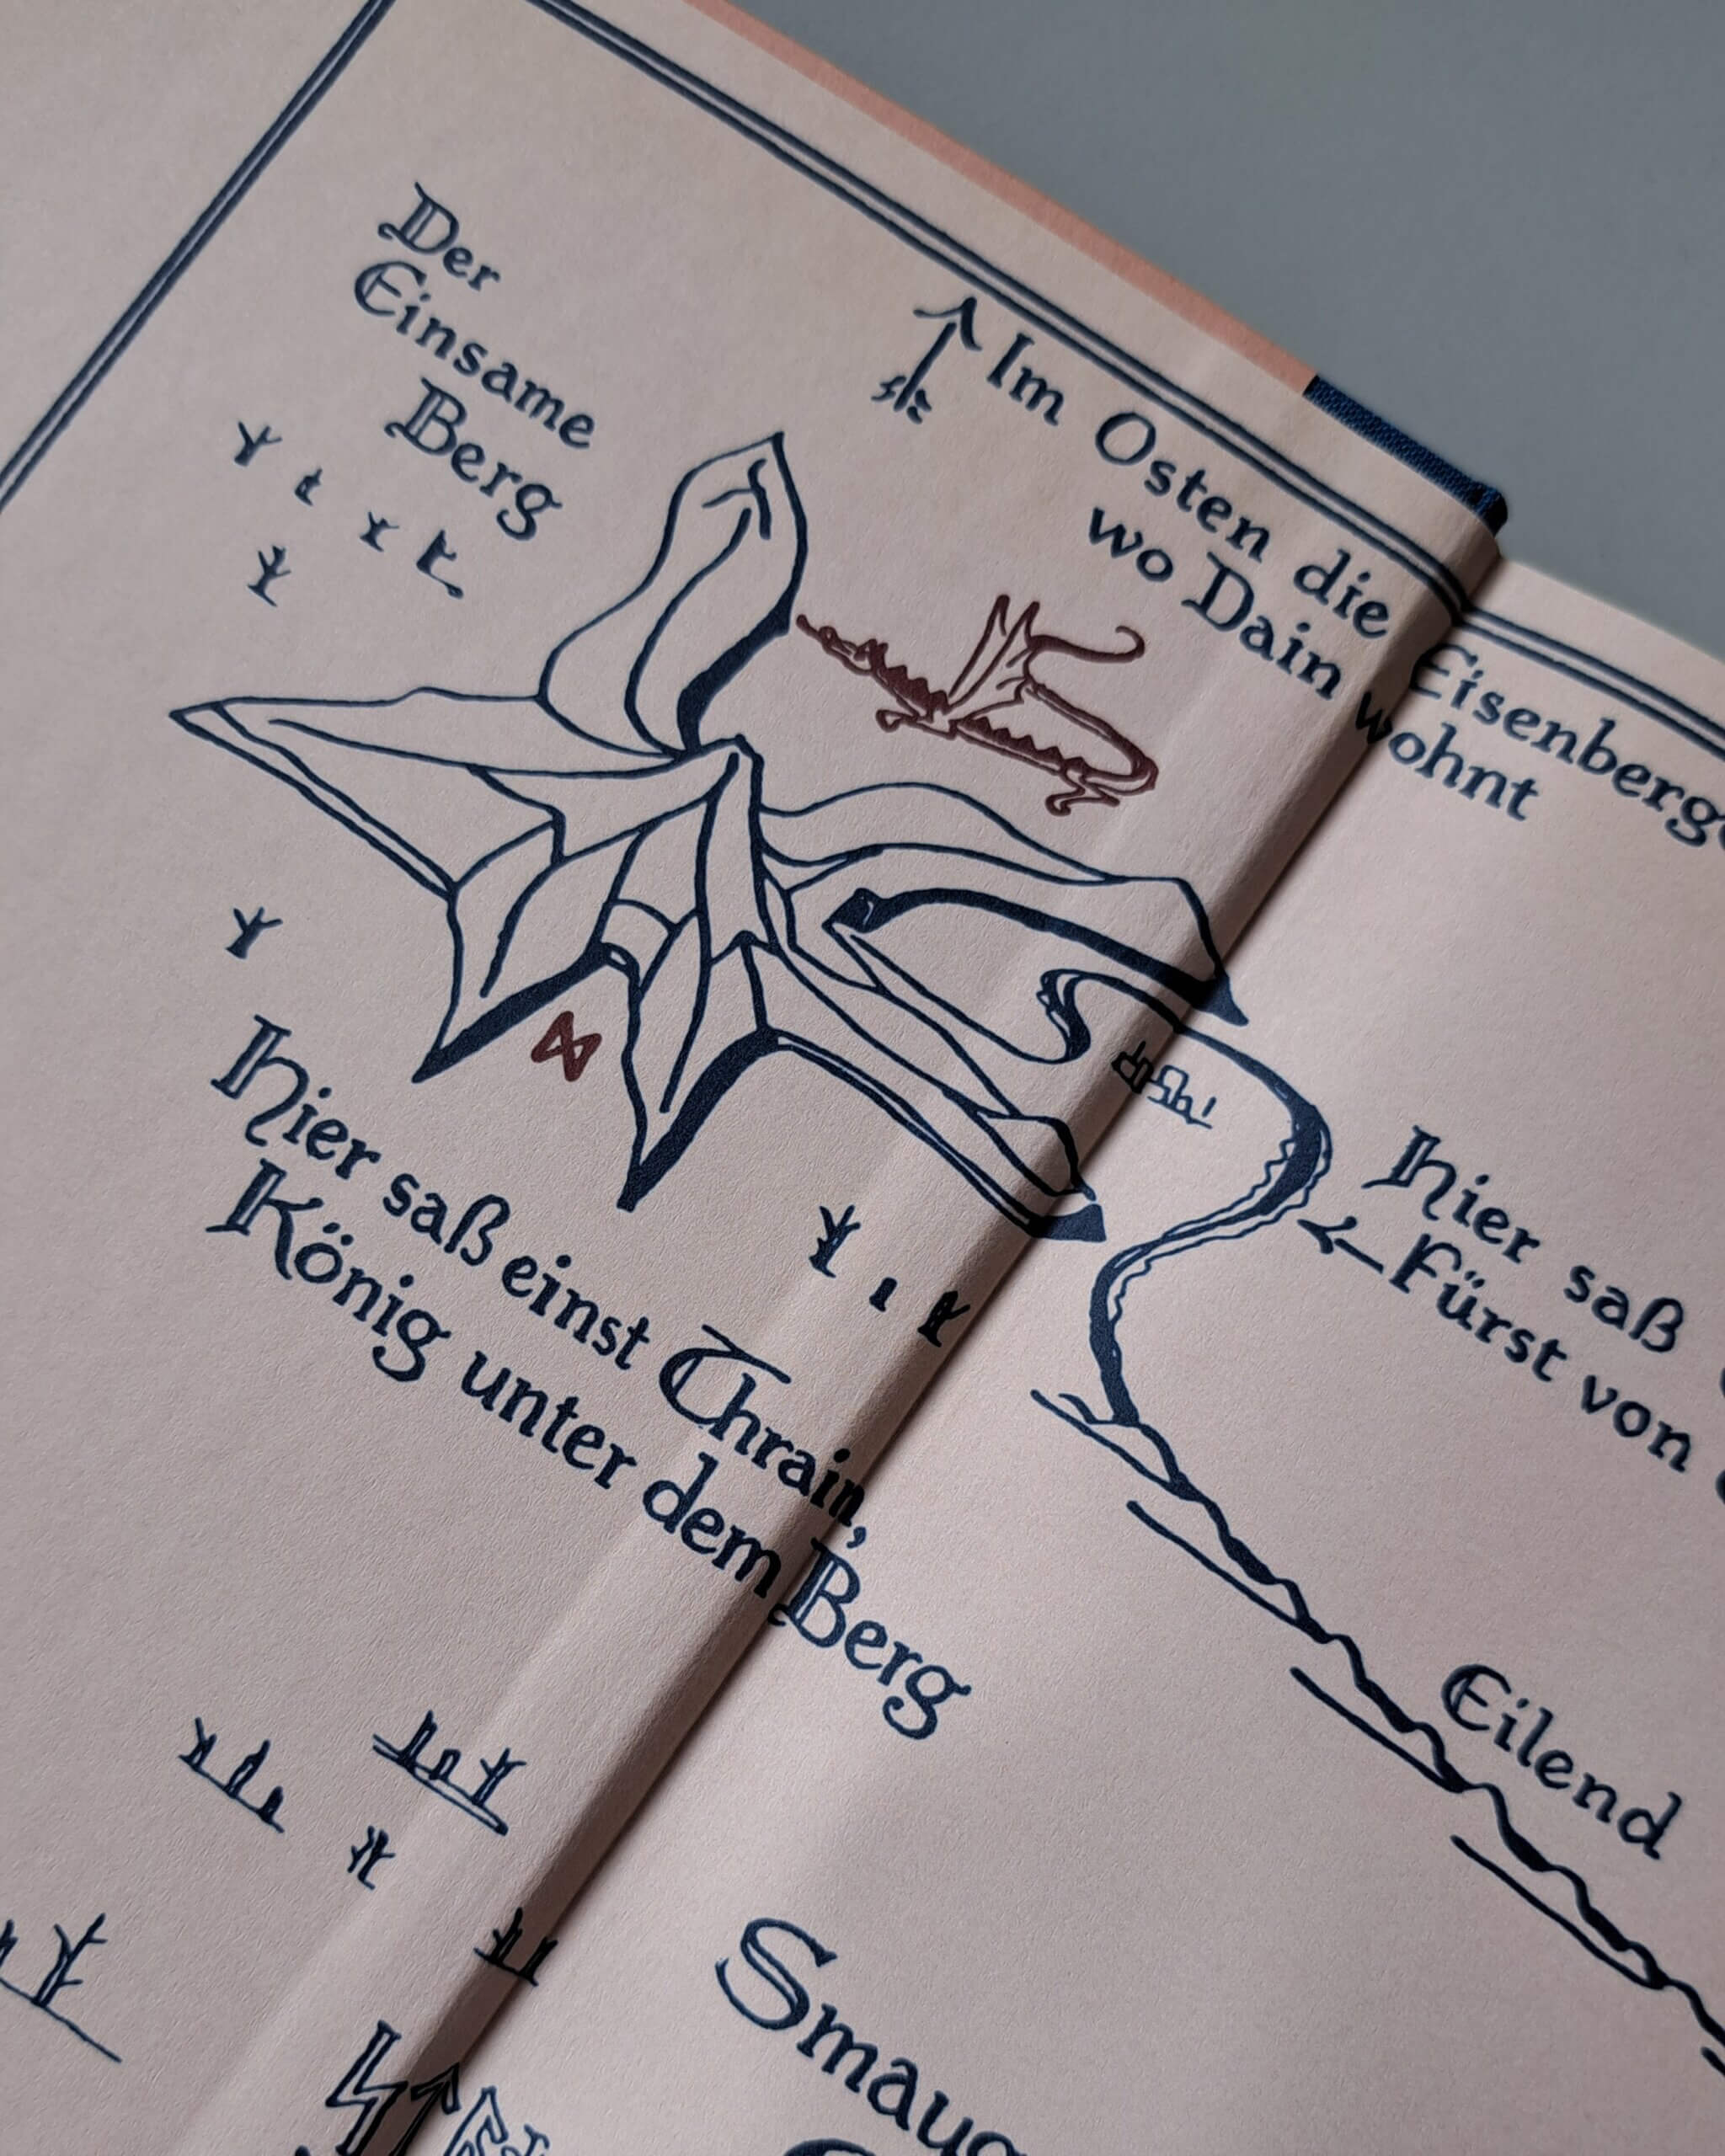 Der
Einsame
Berg
Im Osten die Eisenberge
wo Dain wohnt
Hier saß einst Thrain,
König unter dem Berg
Hier saß
Fürst von
Eilend
Smaug
ᛋ